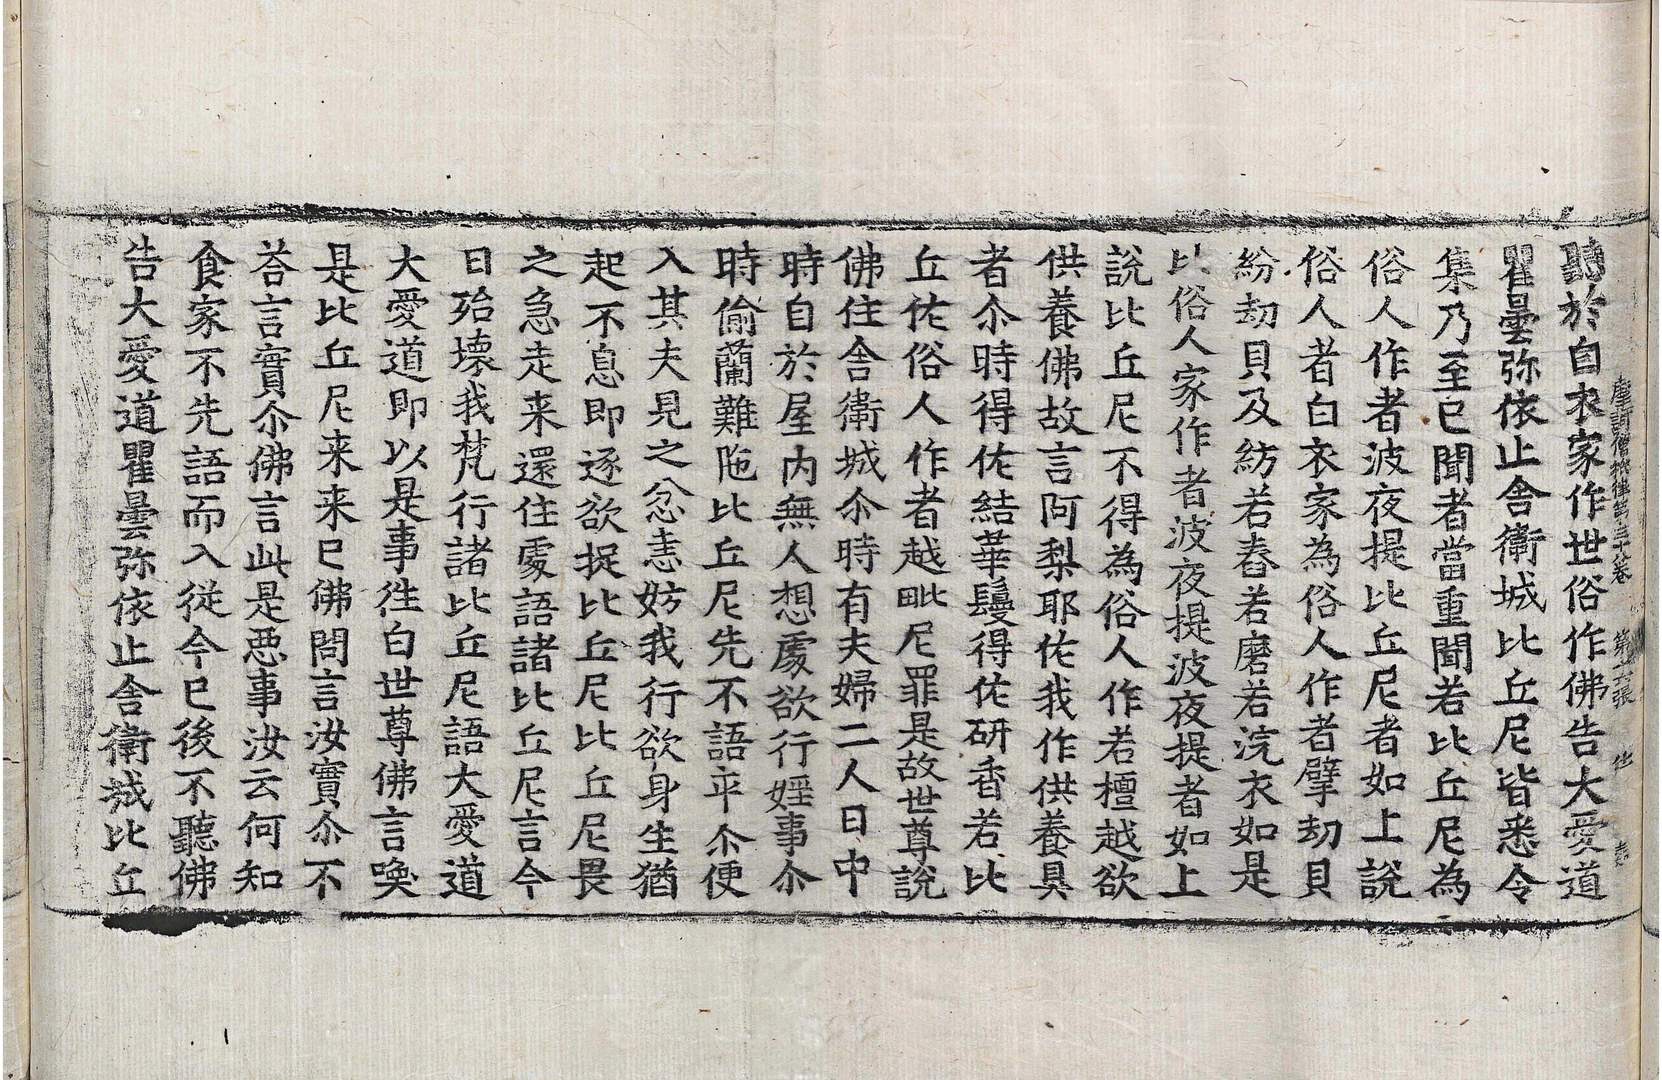 摩訶僧祇律第三十八卷 第六張 化
聽於自衣家作世俗作佛告大愛道
瞿曇弥依止舍衛城比丘尼皆悉令
集乃至已聞者當重聞若比丘尼為
俗人作者波夜提比丘尼者如上說
俗人者白衣家為俗人作者擘劫貝
紛劫貝及紡若舂若磨若浣衣如是
比俗人家作者波夜提波夜提者如上
說比丘尼不得為俗人作若檀越欲
供養佛故言阿梨耶佐我作供養具
者尒時得佐結華鬘得佐研香若比
丘佐俗人作者越毗尼罪是故世尊說
佛住舍衛城尒時有夫婦二人日中
時自於屋内無人想處欲行婬事尒
時偷蘭難陁比丘尼先不語乎尒便
入其夫見之忿恚妨我行欲身生猶
起不息即逐欲捉比丘尼比丘尼畏
之急走来還住處語諸比丘尼言今
日殆壞我梵行諸比丘尼語大愛道
大愛道即以是事徃白世尊佛言喚
是比丘尼来来已佛問言汝實尒不
荅言實尒佛言此是惡事汝云何知
食家不先語而入從今已後不聽佛
告大愛道瞿曇弥依止舍衛城比丘